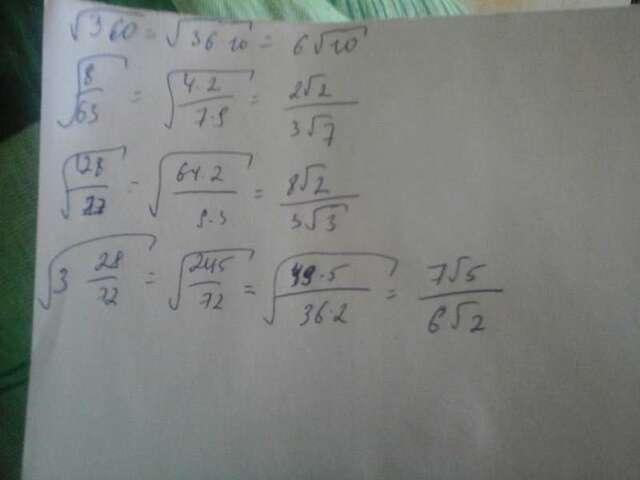 √360 = √36·10 = 6√10
√8/63 = √4·2/7·9 = 2√2/3√7
√128/27 = √64·2/9·3 = 8√2/3√3
√3 29/72 = √245/72 = √49·5/36·2 = 7√5/6√2